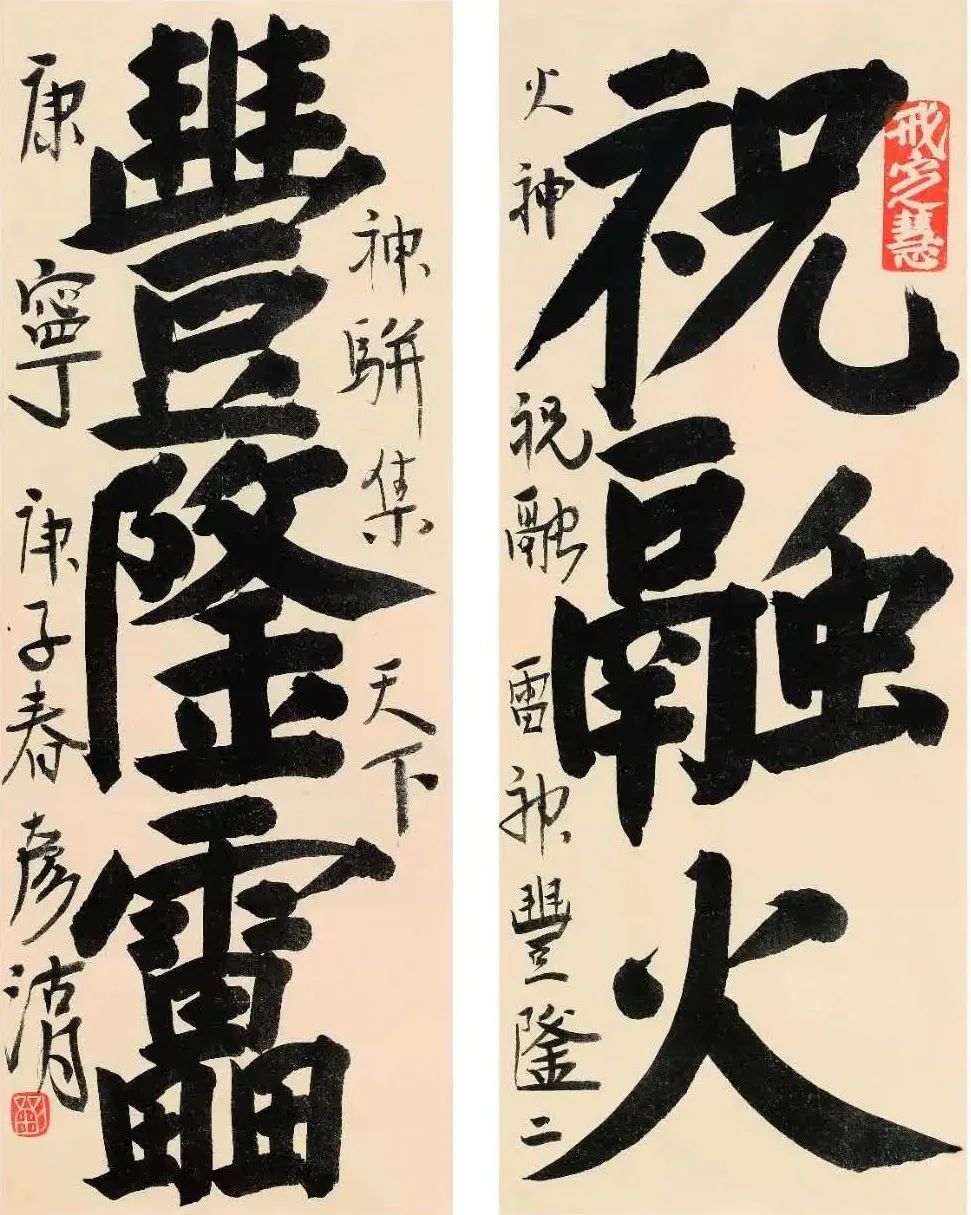 戒定慧
祝融火
火神祝融雷神豐隆二
神駢集天下
豐隆靁
康寧 庚子春彦湖